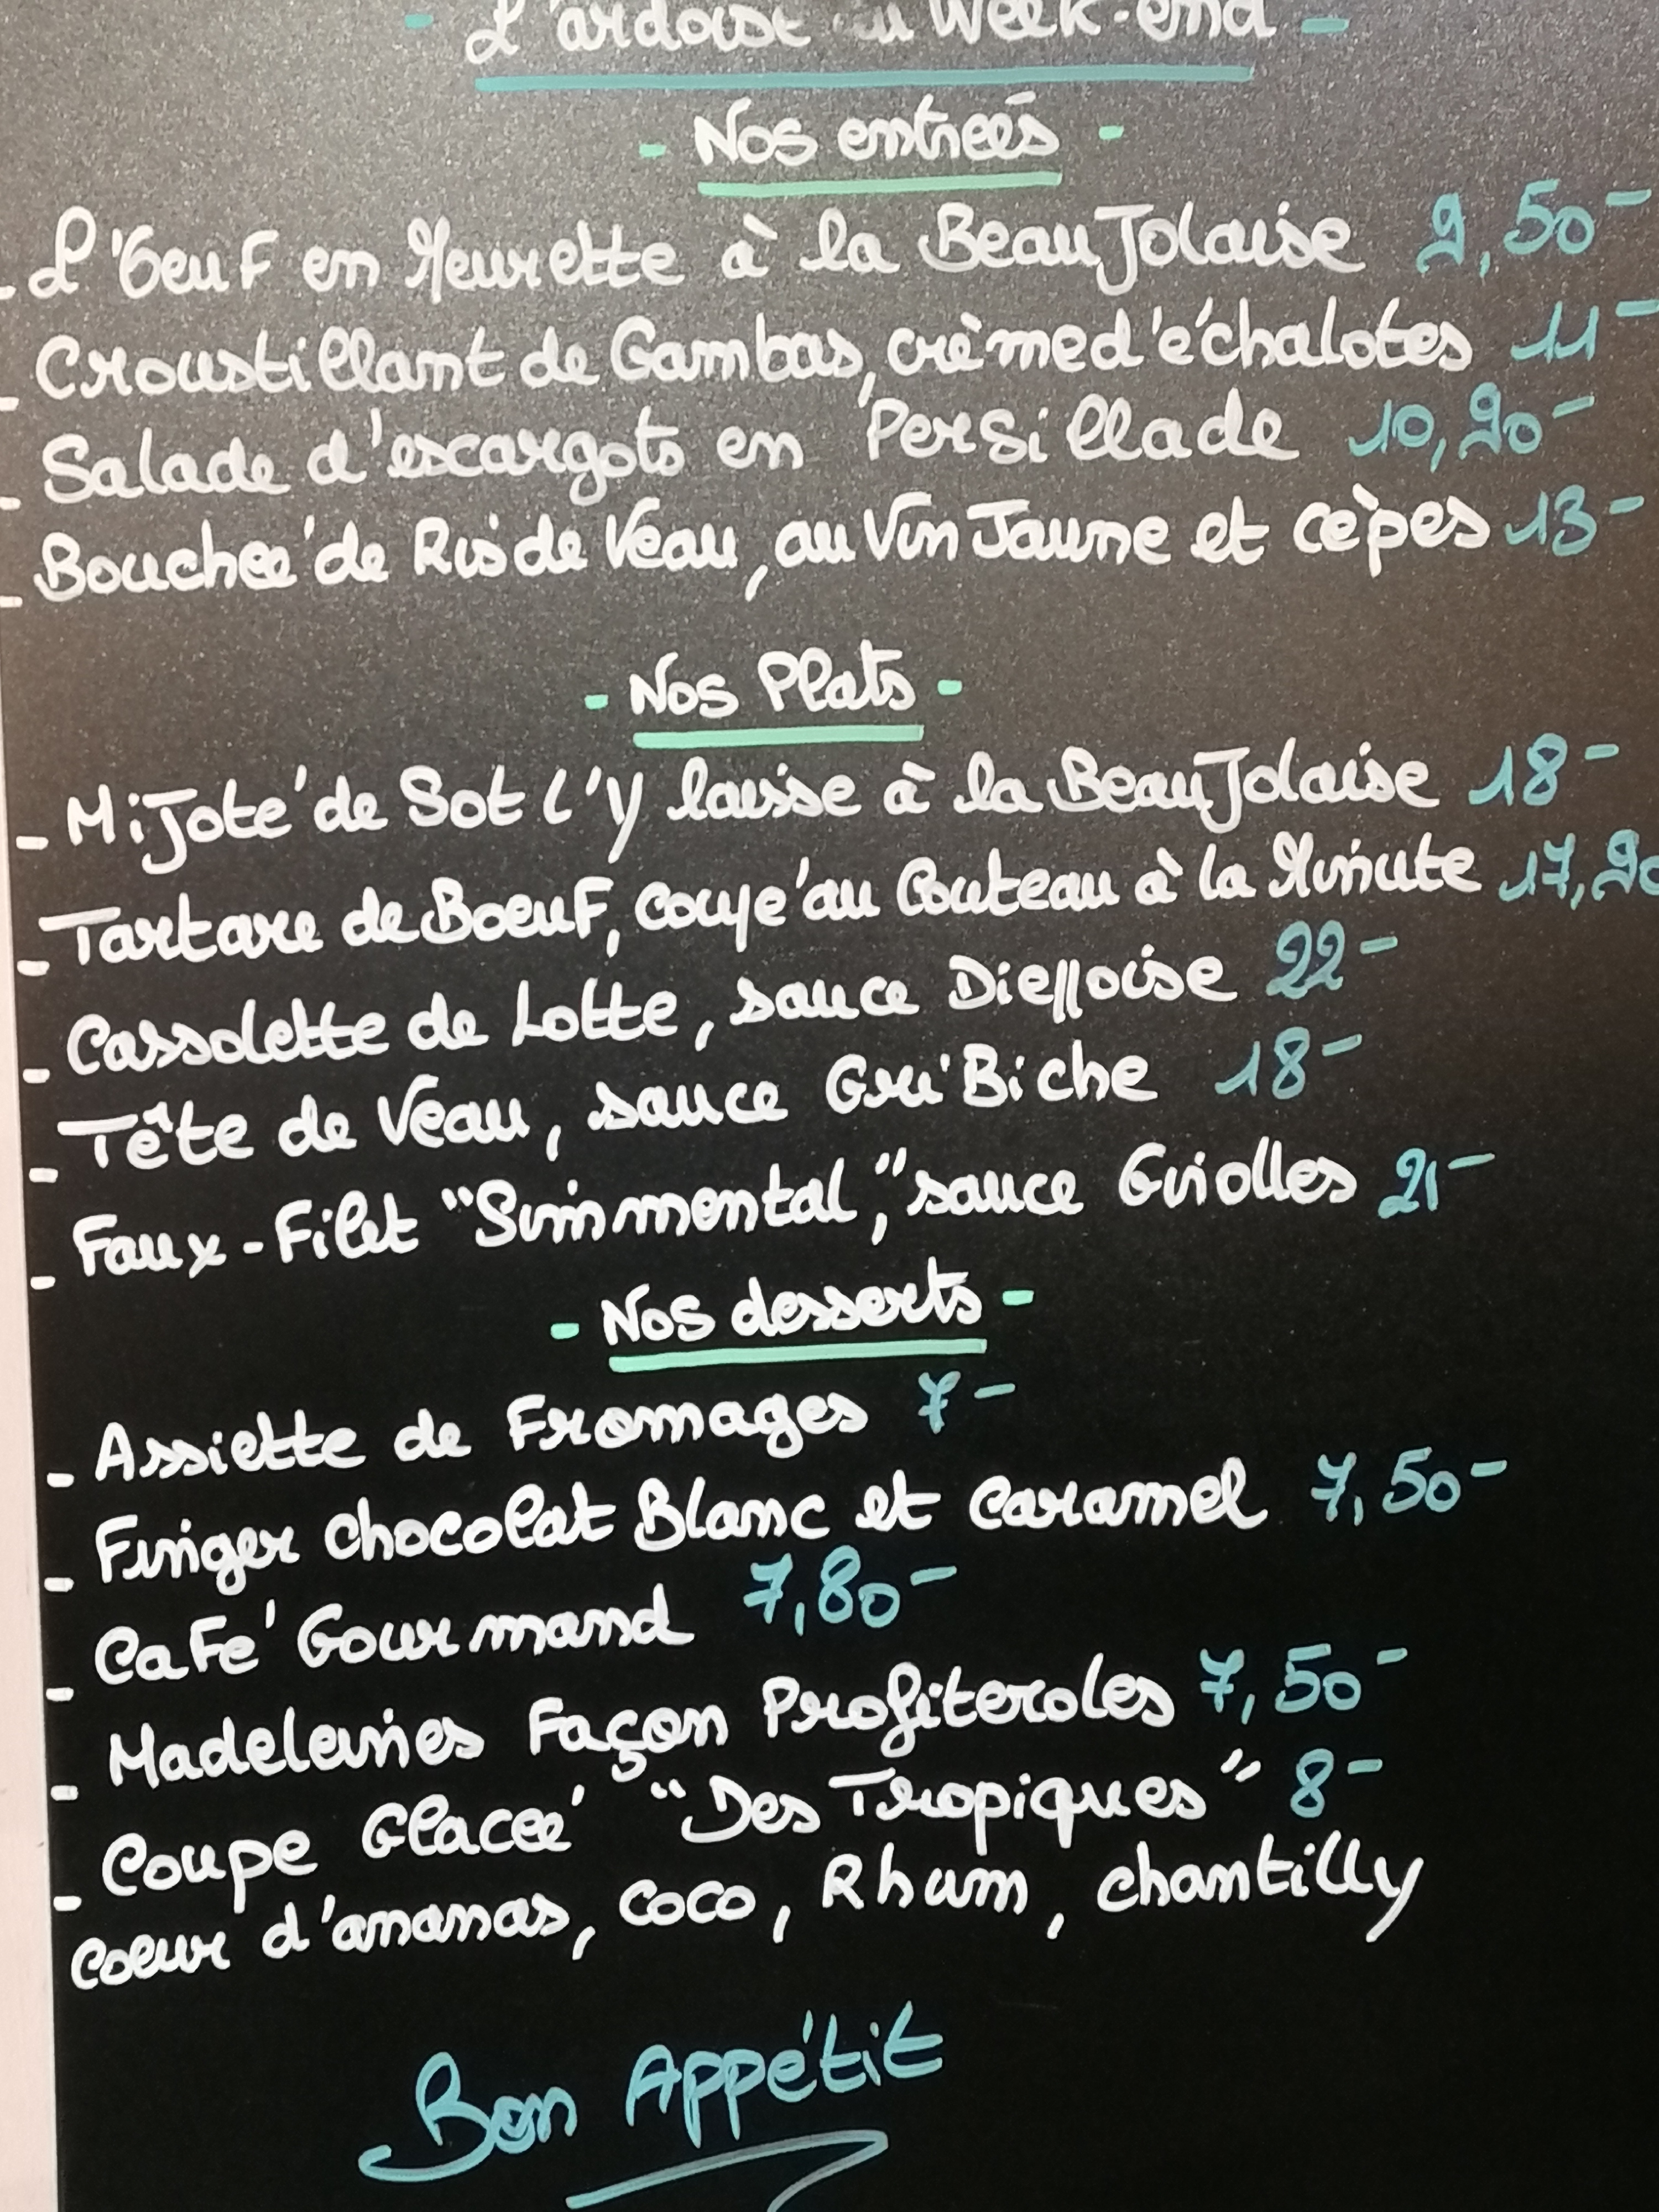 - L'ardoise du Week-end -
- Nos entrées -
- L'Oeuf en Meurette à la BeauJolaise 9,50-
- Croustillant de Gambas, crème d'échalotes 11-
- Salade d'escargots en Persillade 10,90-
- Bouchée de Ris de Veau, au Vin Jaune et cèpes 13-
- Nos Plats -
- MiJoté de Sot l'y laisse à la BeauJolaise 18-
- Tartare de Boeuf, coupé au Couteau à la Minute 17,90
- Cassolette de Lotte, sauce Dieppoise 22-
- Tête de Veau, sauce GriBiche 18-
- Faux-Filet "Simmental," sauce Griolles 21-
- Nos desserts -
- Assiette de Fromages 7-
- Finger chocolat Blanc et Caramel 7,50-
- CaFé Gourmand 7,80-
- Madeleines Façon Profiteroles 7,50-
- Coupe Glacée "Des Tropiques" 8-
Coeur d'ananas, coco, Rhum, chantilly
Bon Appétit